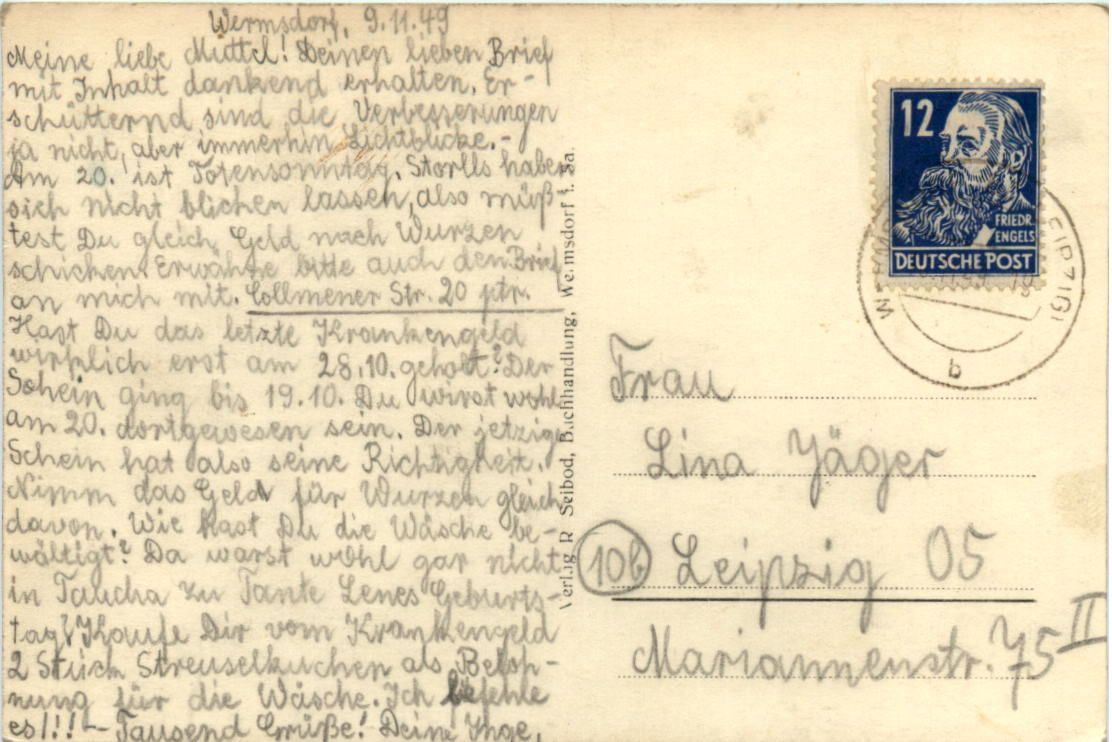 Wermsdorf, 9.11.49
Meine liebe Muttel! Deinen lieben Brief
mit Inhalt dankend erhalten. Er-
schütternd sind die Verbesserungen
ja nicht, aber immerhin Lichtblicke.-
Am 20. ist Totensonntag. Storlls haben
sich nicht blicken lassen, also müß-
test Du gleich Geld nach Wurzen
schicken. Erwähne bitte auch den Brief
an mich mit. Collmener Str. 20 ptr.
Hast Du das letzte Krankengeld
wirklich erst am 28.10. geholt? Der
Schein ging bis 19.10. Du wirst wohl
am 20. dortgewesen sein. Der jetzige
Schein hat also seine Richtigkeit.
Nimm das Geld für Wurzen gleich
davon. Wie hast Du die Wäsche be-
wältigt? Da warst wohl gar nicht
in Taucha zu Tante Lenes Geburts-
tag? Kaufe Dir vom Krankengeld
2 Stück Streuselkuchen als Beloh-
nung für die Wäsche. Ich befehle
es!!! - Tausend Grüße! Deine Inge.
Verlag R. Seibod, Buchhandlung, Wermsdorf i. Sa.
12
FRIEDR.
ENGELS
DEUTSCHE POST
b
Frau
Lina Jäger
10b Leipzig O5
Mariannenstr. 75 II